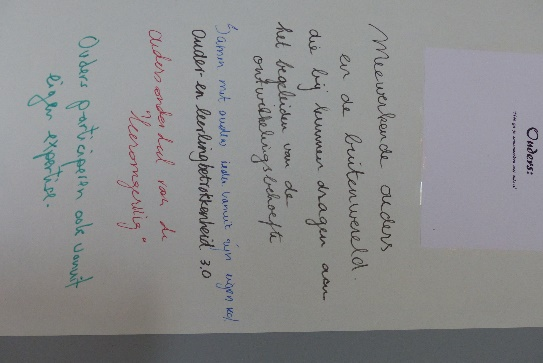 Ouders:
Meewerkende ouders
en de buitenwereld.
die bij kunnen dragen aan
het begeleiden van de
ontwikkelingsbehoefte
Samn met ouders ieder vanuit zijn eigen rol
Ouder en leerlingbetrokkenheid 3.0
Ouders onderdeel van de
"leeromgeving"
Ouders participeren ook vanuit
eigen expertise.